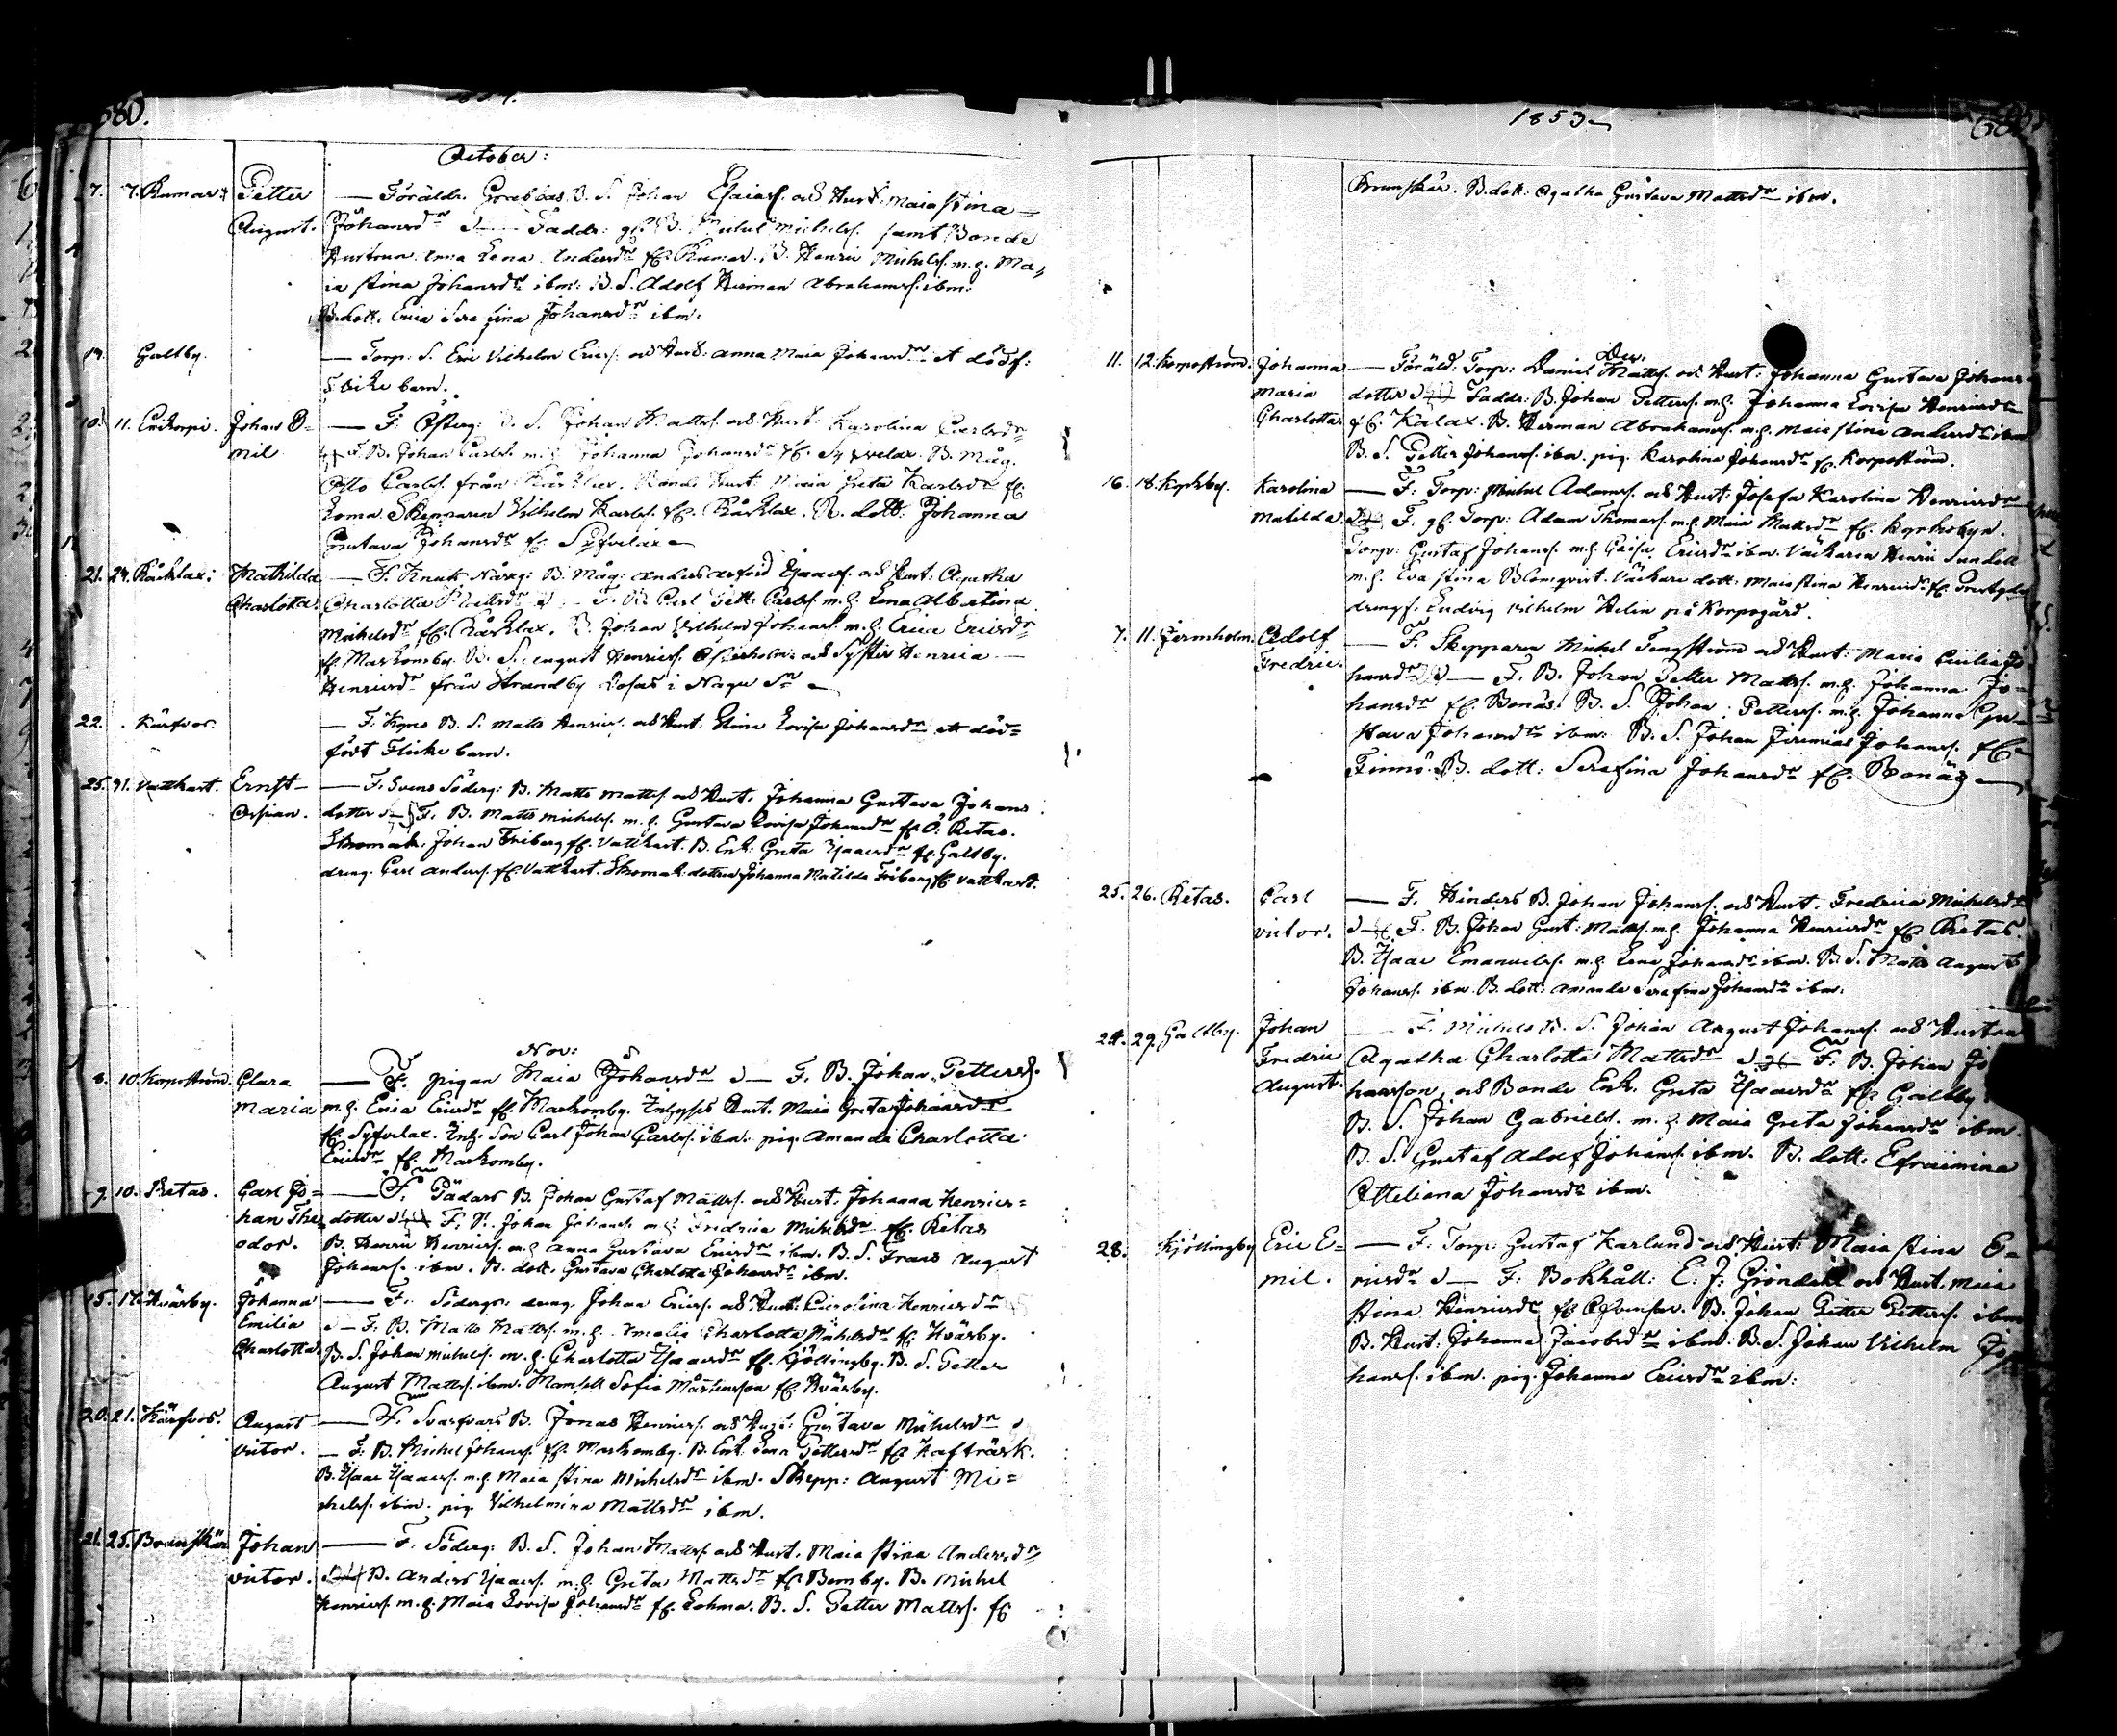 680.
October:
7. 7. Rumar. Petter — Föräldr. Grebbas B. S. Johan Esaiass. och Hust. Maia Stina
August. Johansdr — Faddr: fr. B. Michel Michelss. samt Bonde
Hustrun Lena Andersdr fr. Rumar. B. Henric Michelss. m. h. Ma=
ia Stina Johansdr ibm: B. S. Adolf Herman Abrahamss. ibm:
B. dott. Erica Serafina Johansdr ibm.
Galtby. — Torp: S. Eric Vilhelm Ericss. och Hust: Anna Maia Johansdr et dödf:
Flicke barn.
10. 11. Johan E= — F. Österg: B. S. Johan Mattss. och Hust: Karolina Carlsdr
mil F. B. Johan Carlss. m. h. Johanna Johansdr fr. Syfvelax. B. Måg.
Otto Carlss. från Kårklax. Bonde Hust: Maia Greta Karlsdr fr.
Loma. Skepparen Vilhelm Karlss. fr. Kårklax. B. dott: Johanna
Gustava Johansdr fr. Syfvelax —
21. 24. Kårklax: Mathilda — F. Knuts Nårrg: B. Måg: Anders Isaacss. och Hust: Agatha
Charlotta. Charlotta Mattsdr — F. B. Carl Pett: Carlss. m. h. Lena Albertina
Michelsdr fr. Kårklax. B. Johan Vilhelm Johanss. m. h. Erica Ericsdr
fr. Markomby. B. S. August Henricss. Österholm och Syster Henrica —
Henricsdr från Strandby i Nagu Sn —
22. Kärfvos. — F. B. S. Matts Henricss. och Hust. Stina Lovisa Johansdr ett död=
födt Flicke barn.
25. 31. Vattkast. Ernst — F. Svens Söderg: B. Matts Mattss. och Hust. Johanna Gustava Johans
Ossian. dotter — F. B. Matts Michelss. m. h. Gustava Lovisa Johansdr fr. Ö. Retas.
Skomak. Johan Friberg fr. Vattkast. B. Enk: Greta Isaacsdr fr. Galtby.
dreng. Carl Anderss. fr. Vattkast. Skomak. dottren Johanna Matilda Friberg fr. Vattkast.
Nov:
8. 10. Korpoström. Clara — F. pigan Maia Johansdr — F. B. Johan Petterss.
Maria m. h. Erica Ericsdr fr. Markomby. Inhyses Hust. Maia Greta Johansdr
fr. Syfvelax. Inh. Son Carl Johan Carlss. ibm. pig. Amanda Charlotta
Ericsdr fr. Markomby.
9. 10. Retas. Carl Jo= — F. Pädars B. Johan Gustaf Mattss. och Hust. Johanna Henrics=
han The= dotter F. B. Johan Johanss. m. h. Fredrica Michelsdr fr. Retas
odor. B. Henric Henricss. m. h. Anna Gustava Ericsdr ibm. B. S. Frans August
Johanss. ibm. B. dott. Gustava Charlotta Johansdr ibm.
15. 17. Hvärby. Johanna — F. Södergs: dreng. Johan Ericss. och Hust: Carolina Henricsdr
Emilia — F. B. Matts Mattss. m. h. Amalia Charlotta Michelsdr fr. Hvärby.
Charlotta. B. S. Johan Michelss. m. h. Charlotta Isaacsdr fr. Kjöllingby. B. S. Petter
August Mattss. ibm. Mamsell Sofia Mårtenson fr. Hvärby.
20. 21. Kärfvos. August — F. Svarfvars B. Jonas Henricss. och Hust: Gustava Michelsdr
Victor. — F. B. Michel Johanss. fr. Markomby. B. Enk. Lena Pettersdr fr. Kafträsk.
B. Isaac Isaacss. m. h. Maia Stina Michelsdr ibm. Skepp: August Mi=
chelss. ibm. pig. Vilhelmina Mattsdr ibm.
21. 25. Johan — F. Söderg: B. S. Johan Mattss. och Hust. Maia Stina Andersdr
Victor. B. Anders Isaacss. m. h. Greta Mattsdr fr. B. Michel
Henricss. m. h. Maia Lovisa Johansdr fr. Lohma. B. S. Petter Mattss. fr
1853
Brunskär. B. dott: Agatha Gustava Mattsdr ibm.
Dec.
11. 12. Korpoström. Johanna — Föräld: Torp: Daniel Mattss. och Hust: Johanna Gustava Johans
Maria dotter Faddr: B. Johan Petterss. m. h. Johanna Lovisa Henricsdr
Charlotta. fr. Kalax. B. Herman Abrahamss. m. h. Maia Stina Andersdr ibm
B. S. Petter Johanss. ibm. pig. Karolina Johansdr fr. Korpoström.
16. 18. Kyrkby. Karolina — F. Torp: Michel Adamss. och Hust: Josefa Karolina Henricsdr
Matilda. F. fr. Torp: Adam Thomass. m. h. Maia Mattsdr fr. Kyrkobyn.
Torp: Gustaf Johanss. m. h. Caisa Ericsdr ibm. Väckaren Henric Sundell
m. h. Eva Stina Blomqvist. Väckare dott: Maia Stina Henricsdr fr.
drengs. Ludvig Vilhelm Helin på Korpogård.
7. 11. Jermholm. Adolf — F. Skepparen Michel Tengström och Hust: Maria Cecilia Jo
Fredric. hansdr — F. B. Johan Petter Mattss. m. h. Johanna Jo=
hansdr fr. Bonäs. B. S. Johan Petterss. m. h. Johanna Gu=
stava Johansdr ibm: B. S. Johan Jeremias Johanss. fr.
Finnö. B. dott: Serafina Johansdr fr. Bonäs —
25. 26. Retas. Carl — F. Hinders B. Johan Johanss. och Hust. Fredrica Michelsdr
Victor. F: B. Johan Gust: Mattss. m. h. Johanna Henricsdr fr. Retas.
B. Isaac Emanuelss. m. h. Lena Johansdr ibm. B. S. Matts August
Johanss. ibm. B. dott: Amanda Serafina Johansdr ibm.
24. 29. Galtby. Johan — F. Michels B. S. Johan August Johanss. och Hustru
Fredric Agatha Charlotta Mattsdr F: B. Johan Jo
August. hansson och Bonde Enk. Greta Isaacsdr fr. Galtby
B. S. Johan Gabrielss. m. h. Maia Greta Johansdr ibm.
B. S. Gustaf Adolf Johanss. ibm. B. dott: Efraimina
Otteliana Johansdr ibm.
28. Kjöllingby Eric E= — F: Torp: Gustaf Karlund och Hust: Maia Stina E=
mil. ricsdr — F: Bokhåll: E. J. Gröndahl och Hust. Maia
Stina Henricsdr fr. B. Johan Petter Petterss. ibm
B. Hust: Johanna Jacobsdr ibm: B. S. Johan Vilhelm Jo
hanss. ibm. pig. Johanna Ericsdr ibm: